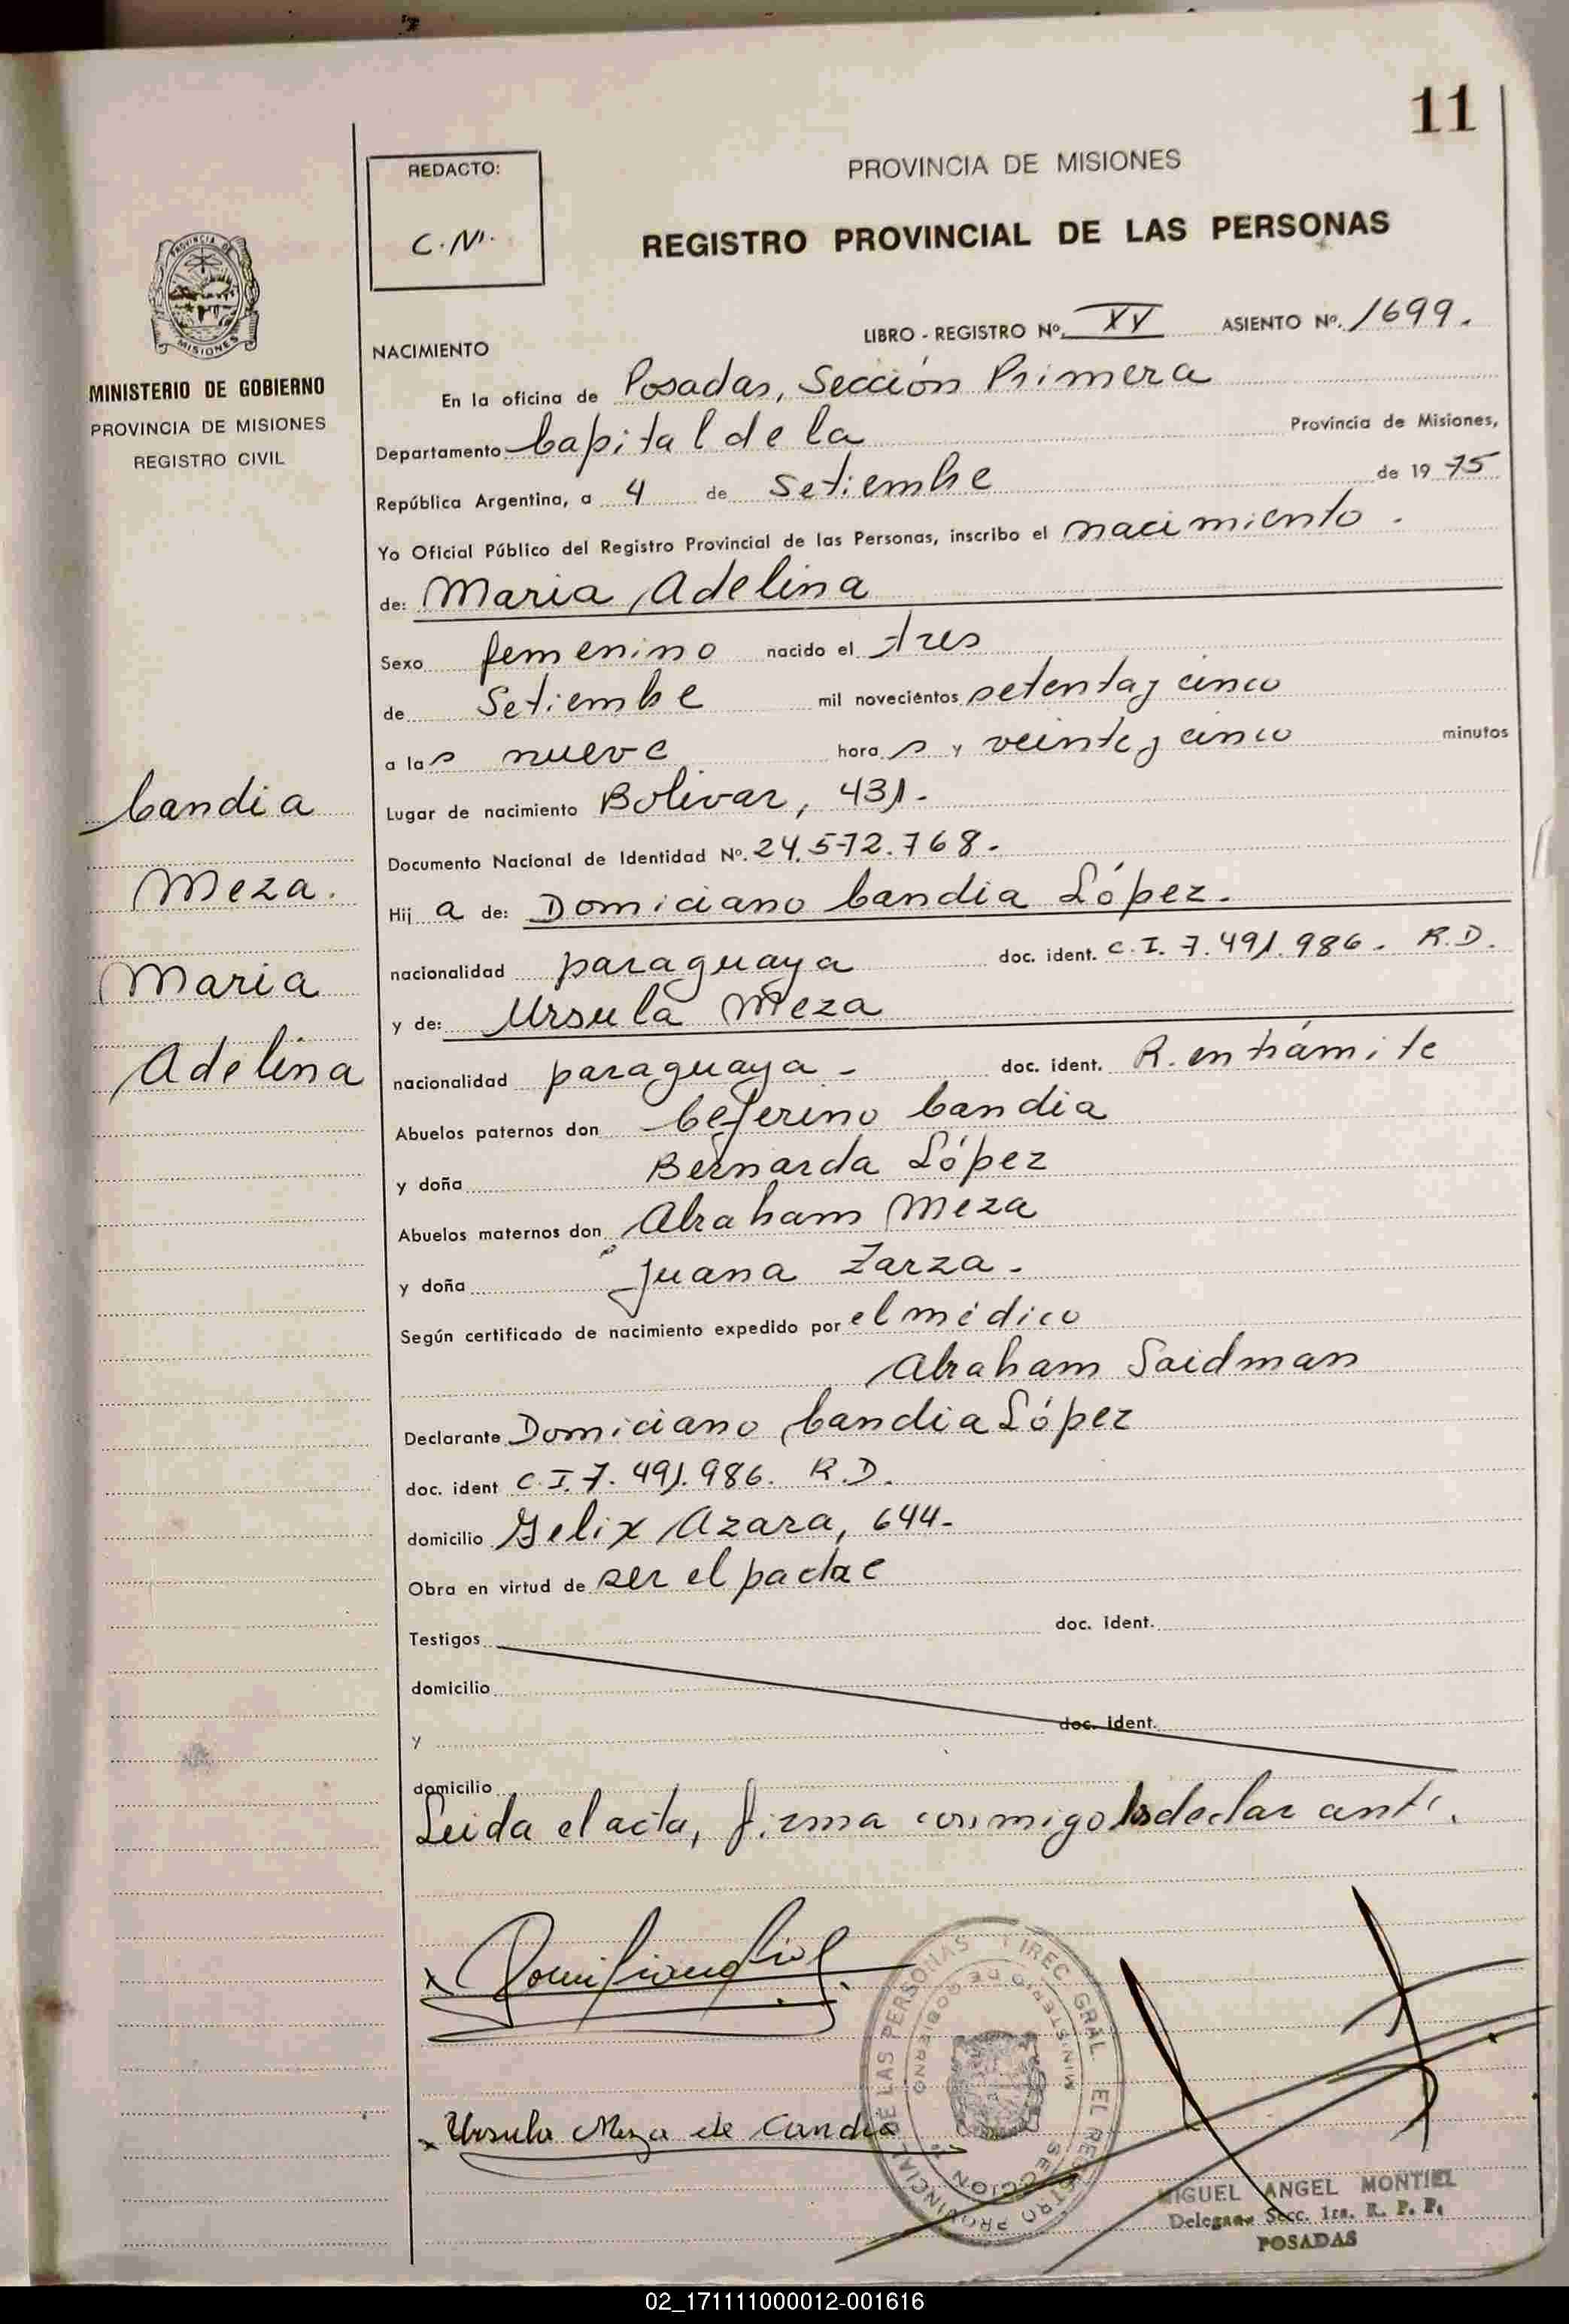 11
PROVINCIA DE MISIONES
REGISTRO PROVINCIAL DE LAS PERSONAS
REDACTO:
C.N.
PROVINCIA DE
MISIONES
MINISTERIO DE GOBIERNO
PROVINCIA DE MISIONES
REGISTRO CIVIL
LIBRO - REGISTRO Nº. XV ASIENTO Nº. 1699.
NACIMIENTO
En la oficina de Posadas, Sección Primera
Departamento Capital de la Provincia de Misiones,
República Argentina, a 4 de Setiembre de 19 75
Yo Oficial Público del Registro Provincial de las Personas, inscribo el nacimiento.
de: Maria Adelina
Sexo femenino nacido el tres
de Setiembre mil novecientos setenta y cinco
a las nueve horas y veinte y cinco minutos
Lugar de nacimiento Bolivar, 431.
Documento Nacional de Identidad Nº. 24.572.768.
Hij a de: Domiciano Candia López.
nacionalidad paraguaya doc. ident. C.I. 7.491.986. R.D.
y de: Ursula Meza
nacionalidad paraguaya - doc. ident. R. en trámite
Abuelos paternos don Ceferino Candia
y doña Bernarda López
Abuelos maternos don Abraham Meza
y doña Juana Zarza.
Según certificado de nacimiento expedido por el médico
Abraham Saidman
Declarante Domiciano Candia López
doc. ident C.I. 7.491.986. R.D.
domicilio Felix Azara, 644-
Obra en virtud de ser el padre
Testigos doc. ident.
domicilio
y doc. ident.
domicilio
Leida el acta, firma conmigo declarante.
Candia
Meza.
Maria
Adelina
x
x Ursula Meza de Candia
DIREC. GRAL. DEL REGISTRO PROVINCIAL DE LAS PERSONAS
MINISTERIO DE GOBIERNO
SECCION
MIGUEL ANGEL MONTIEL
Delegado Secc. 1ra. R. P. P.
POSADAS
02_171111000012-001616